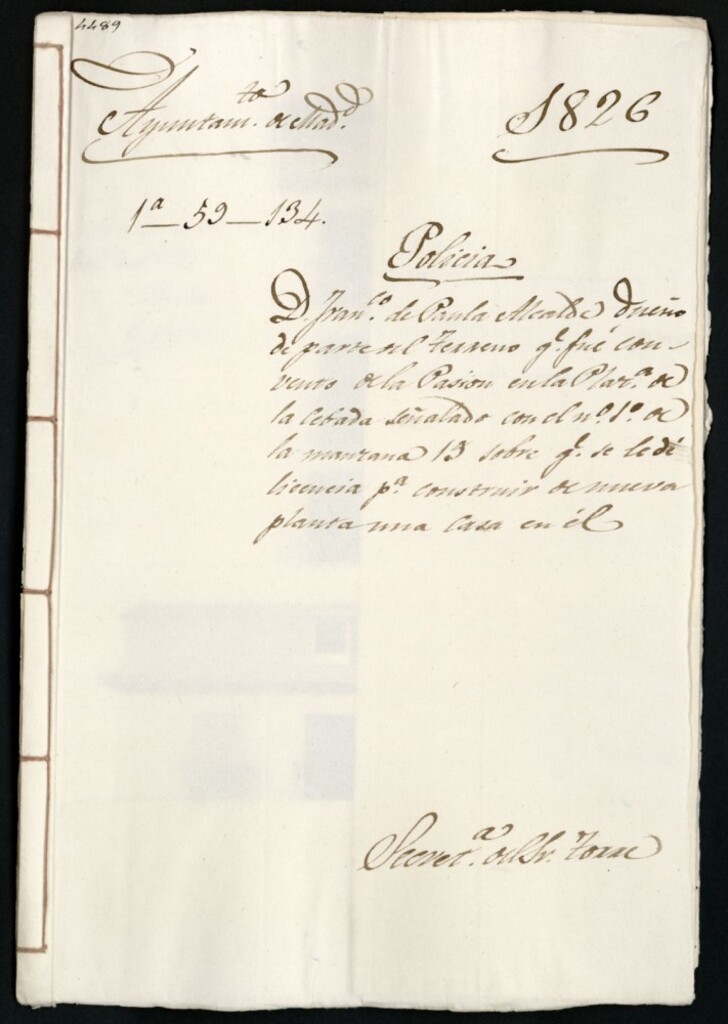 4489
Ayuntam.to de Mad.d
1826
1ª_59_134.
Policia
D. Fran.co de Paula Alcalde, dueño
de parte del Terreno q.e fué con-
vento de la Pasion en la Plaz.a de
la Cebada señalado con el nº. 1º. de
la manzana 13 sobre q.e se le dé
licencia p.a construir de nueva
planta una casa en él
Secret.a del Sr. Torre